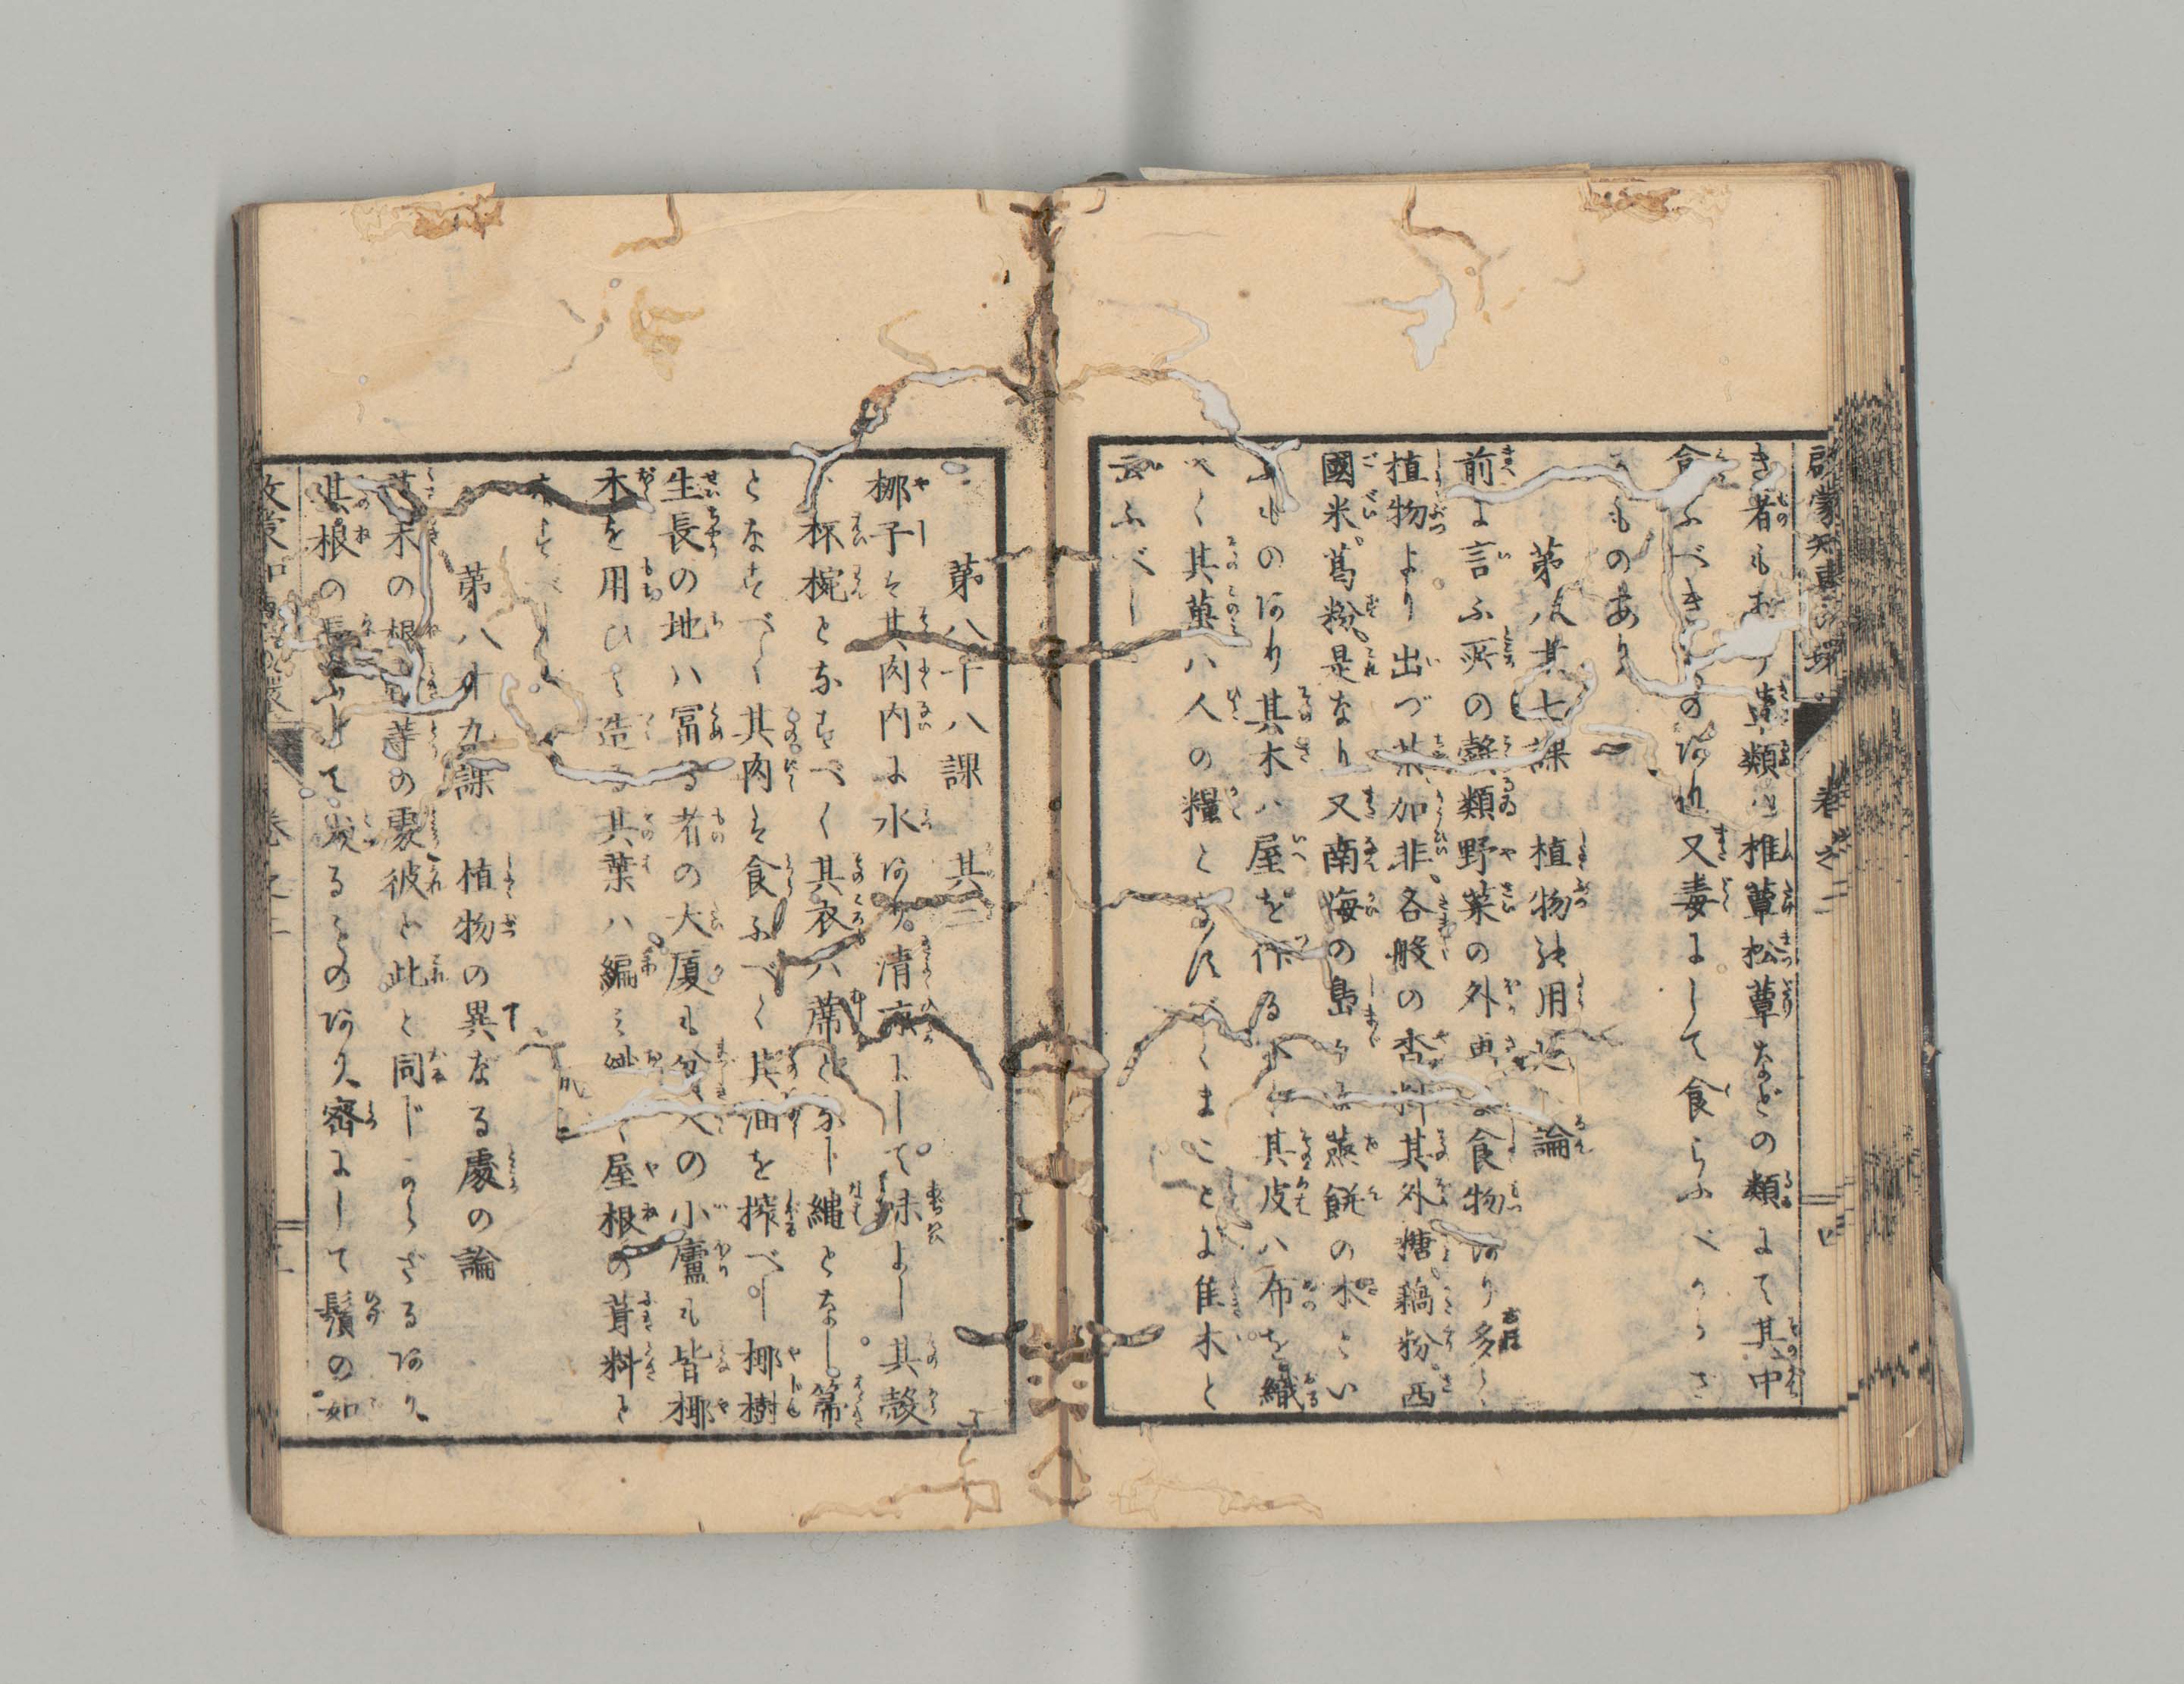 き者もあり蕈類は椎蕈松蕈などの類にて其中
食ふべきものあり又毒にして食らふべからざ
るものあり
第八十七課 植物 用 論
前に言ふ所の穀類野菜の外 食物あり多く
植物より出づ茶、加非、各般の香料其外糖、藕粉、西
國米、葛粉、是なり又南海の島々に蒸餅の木とい
ふものあり其木ハ屋を作る 其皮ハ布を織
べく其菓ハ人の糧となすべくまことに佳木と
云ふべし
第八十八課 其二
椰子は其肉内に水あり清 にして味よし其殼
ハ杯椀となすべく其衣ハ蓆となし繩となし、箒
となすべく其肉は食ふべく其油を搾べし椰樹
生長の地ハ冨る者の大厦も貧人の小廬も皆椰
木を用ひて造る其葉ハ編 て屋根の葺料と
なすべし
第八十九課 植物の異なる處の論
草木の根 等の處彼と此と同じからざるあり
其根の長 ふして るものあり又密にして鬚の如